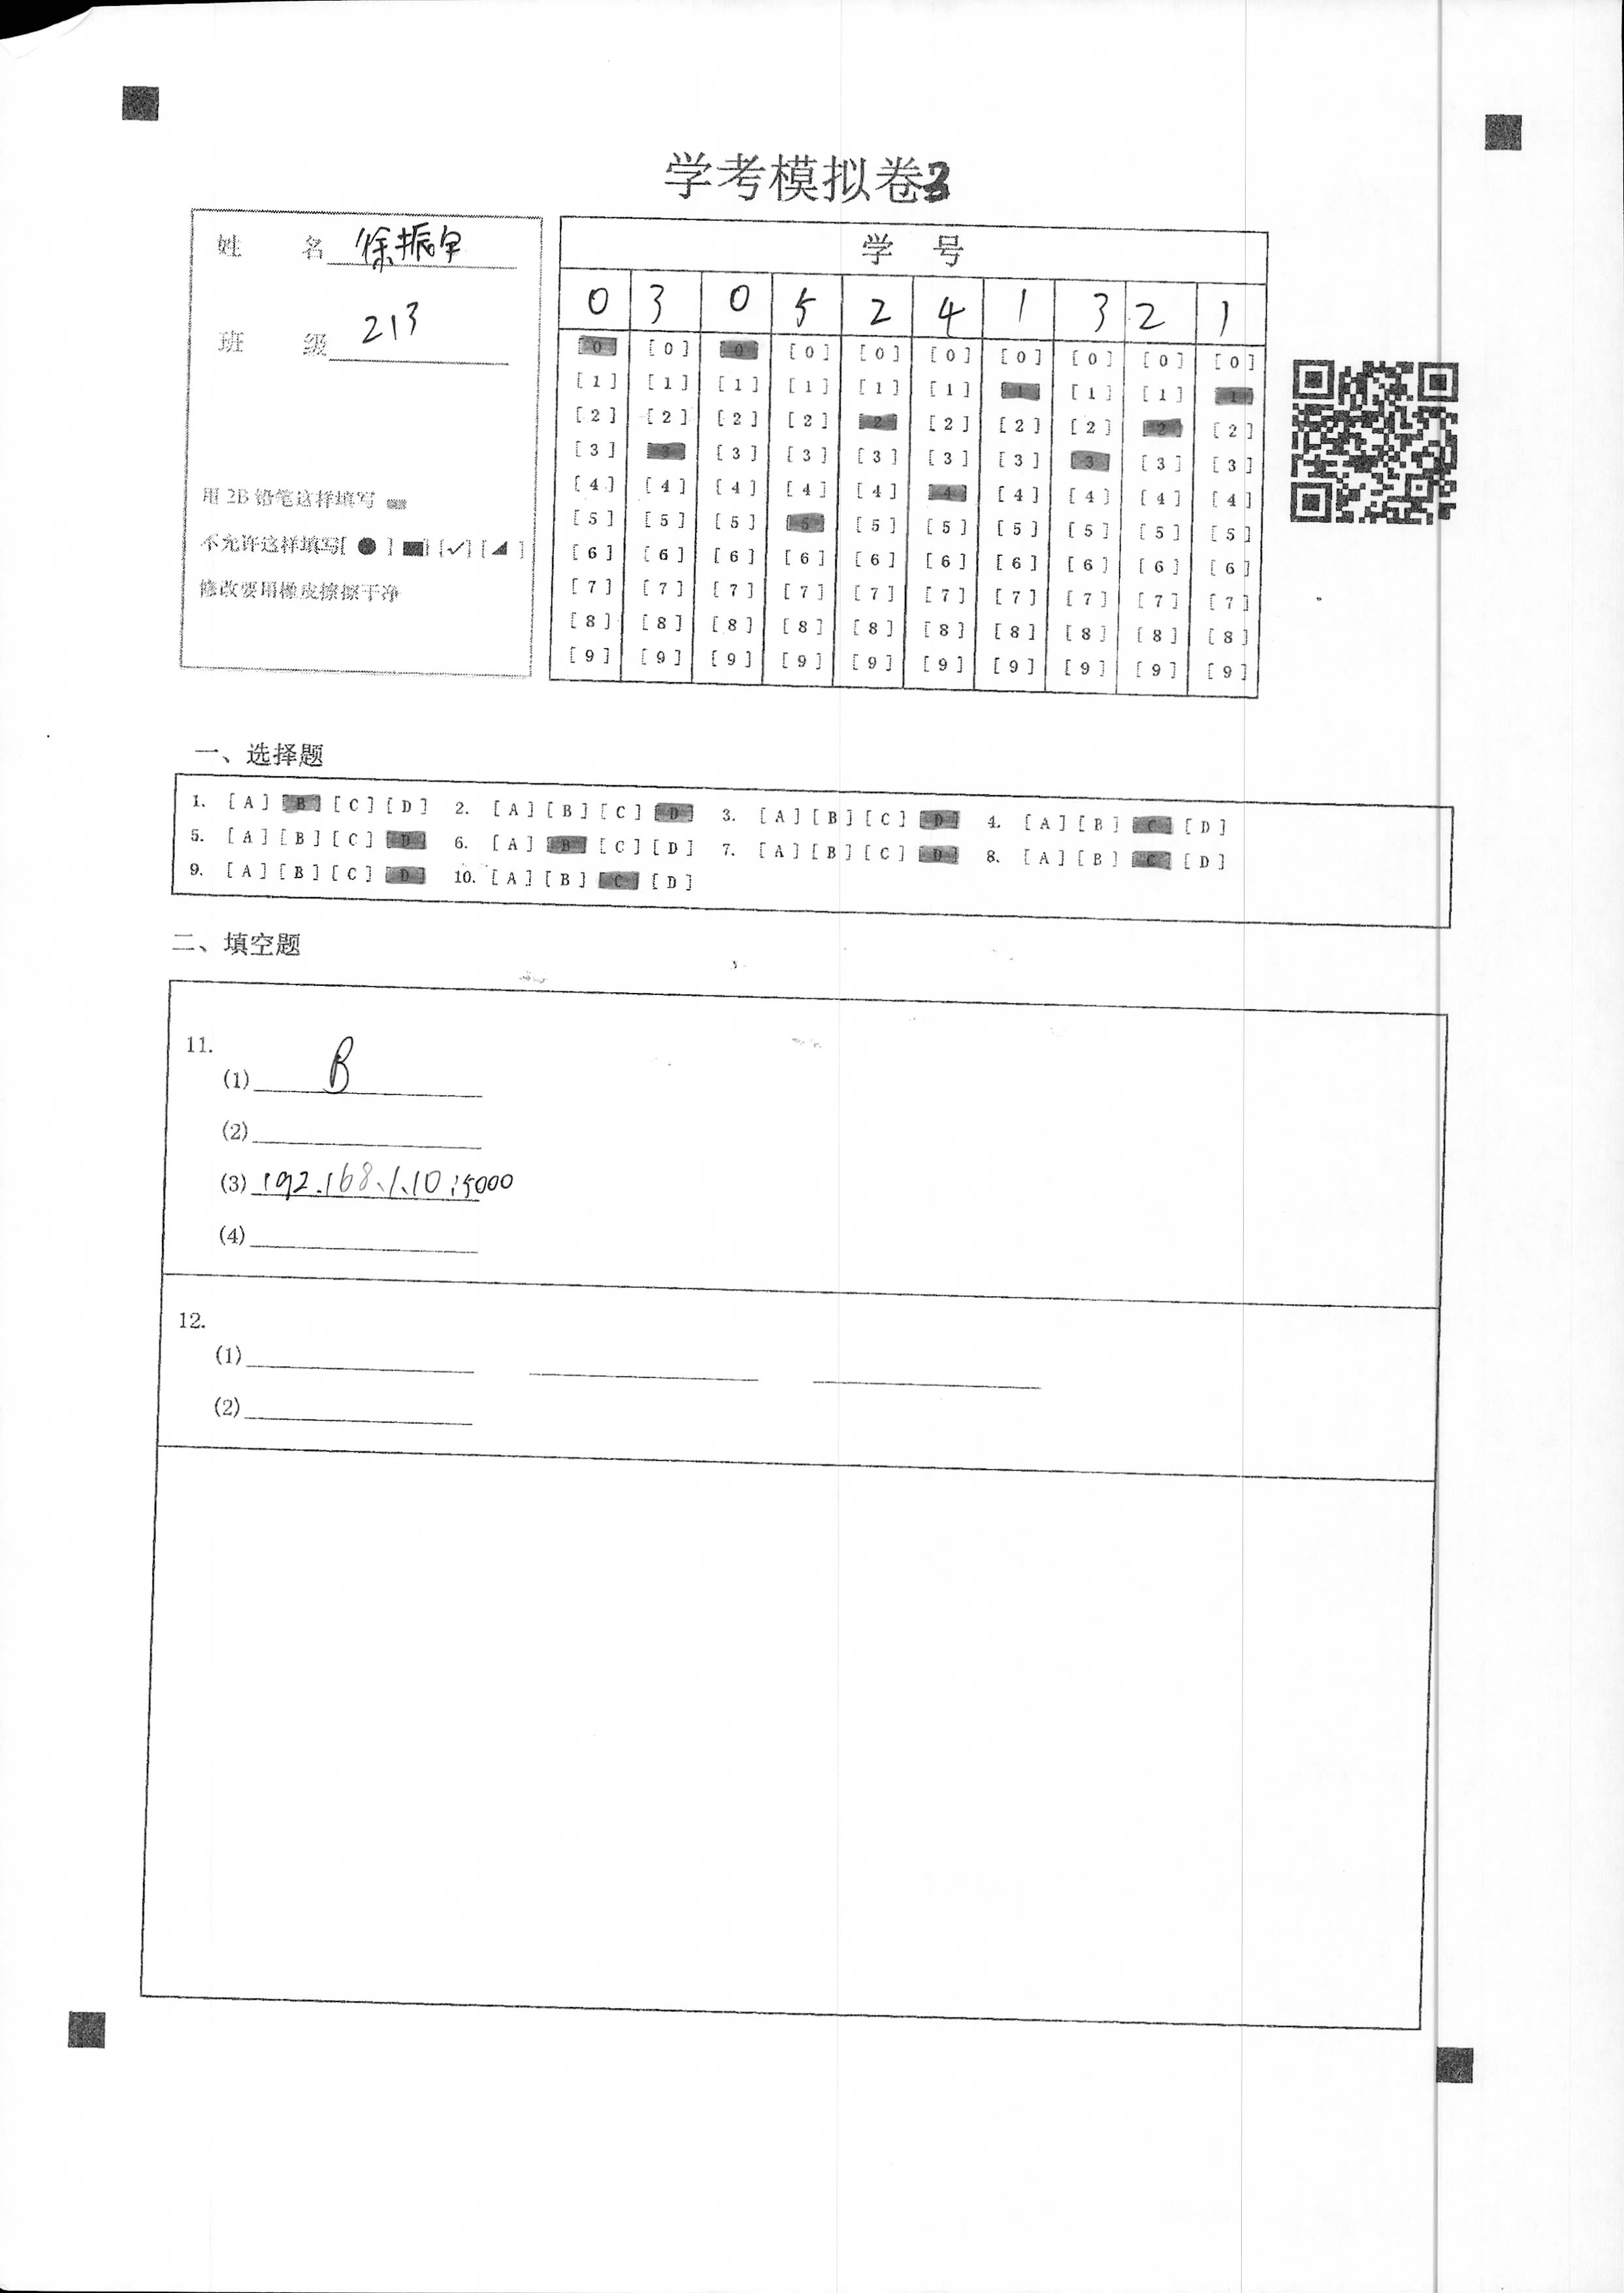 学考模拟卷3
姓 名 徐振宇
班 级 213
用 2B 铅笔这样填写
不允许这样填写[ ● ] [■] [✓] [◢ ]
修改要用橡皮擦擦干净
学 号
0 3 0 5 2 4 1 3 2 1
[0] [0] [0] [0] [0] [0] [0] [0] [0] [0]
[1] [1] [1] [1] [1] [1] [1] [1] [1] [1]
[2] [2] [2] [2] [2] [2] [2] [2] [2] [2]
[3] [3] [3] [3] [3] [3] [3] [3] [3] [3]
[4] [4] [4] [4] [4] [4] [4] [4] [4] [4]
[5] [5] [5] [5] [5] [5] [5] [5] [5] [5]
[6] [6] [6] [6] [6] [6] [6] [6] [6] [6]
[7] [7] [7] [7] [7] [7] [7] [7] [7] [7]
[8] [8] [8] [8] [8] [8] [8] [8] [8] [8]
[9] [9] [9] [9] [9] [9] [9] [9] [9] [9]
一、选择题
1. [A] [B] [C] [D] 2. [A] [B] [C] [D] 3. [A] [B] [C] [D] 4. [A] [B] [C] [D]
5. [A] [B] [C] [D] 6. [A] [B] [C] [D] 7. [A] [B] [C] [D] 8. [A] [B] [C] [D]
9. [A] [B] [C] [D] 10. [A] [B] [C] [D]
二、填空题
11.
(1) B
(2)
(3) 192.168.1.10:5000
(4)
12.
(1)
(2)